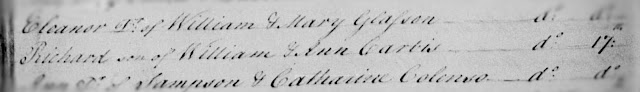 Eleanor Dr. of William & Mary Glasson — do. do.
Richard son of William & Ann Carbis — do. 17th
Ann Dr. of Sampson & Catharine Colenso — do. do.